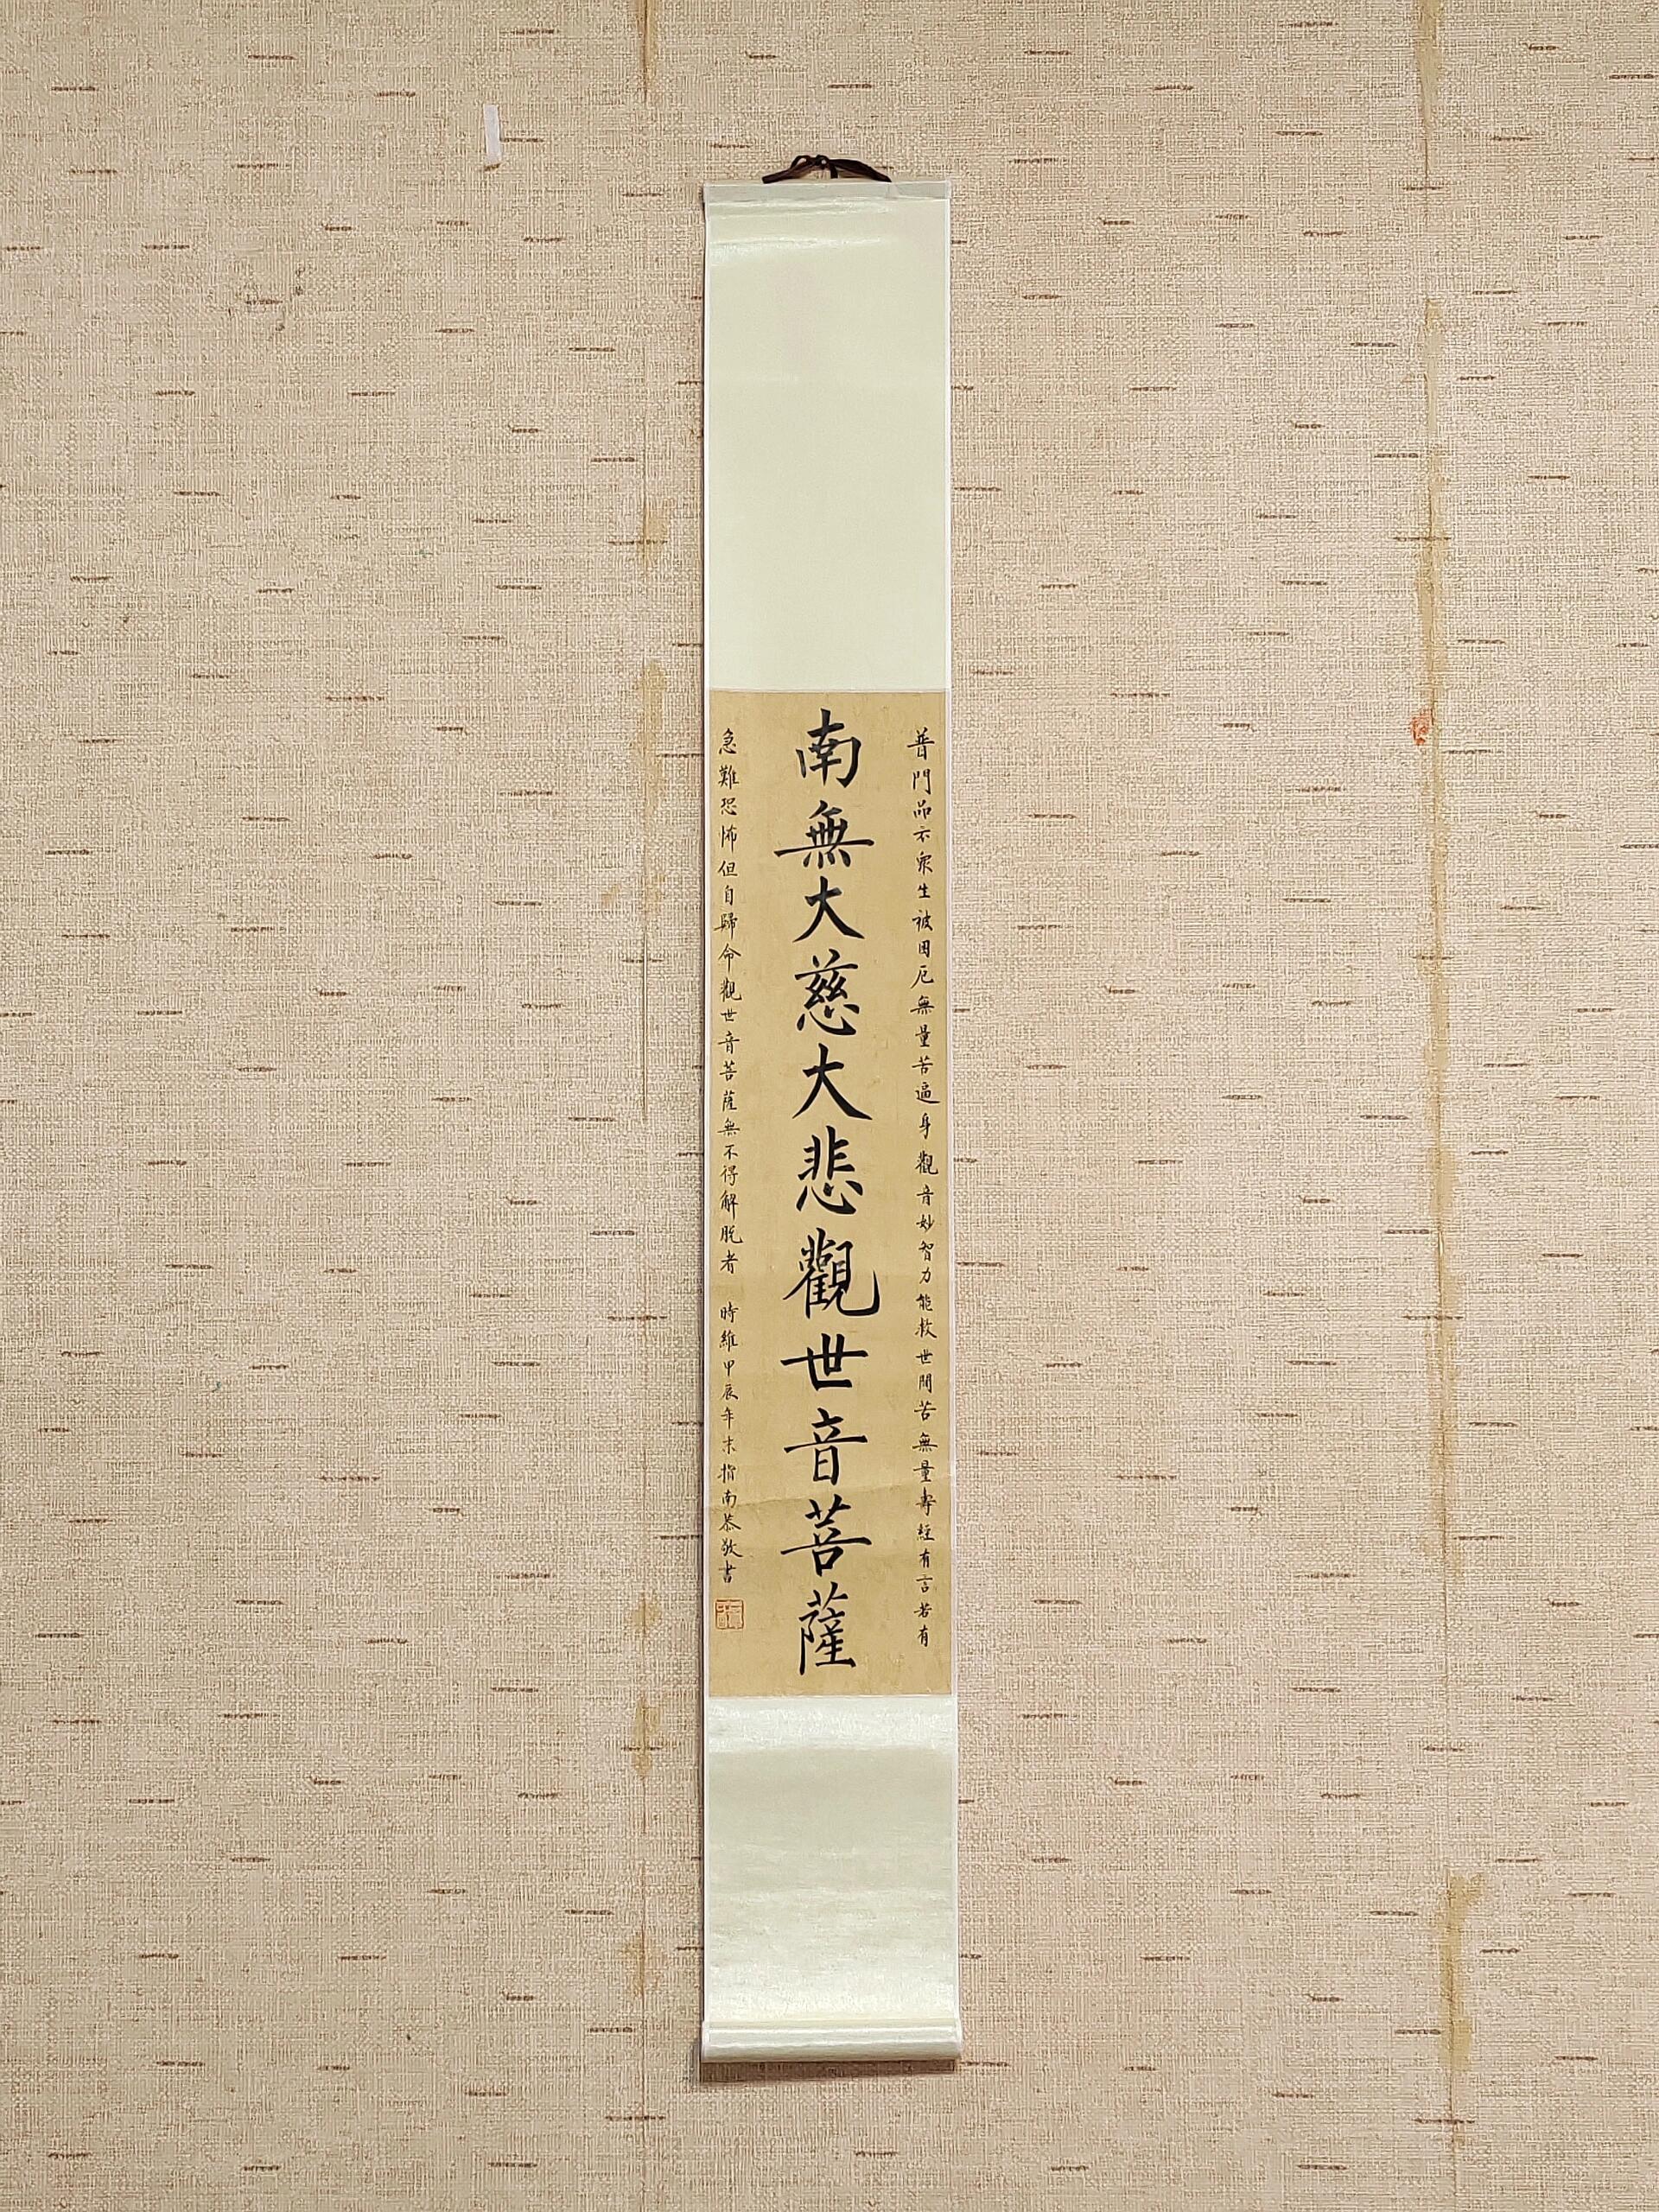 普門品示衆生被困厄無量苦逼身觀音妙智力能救世間苦無量壽經有言若有
南無大慈大悲觀世音菩薩
急難恐怖但自歸命觀世音菩薩無不得解脫者 時維甲辰年末指南恭敬書